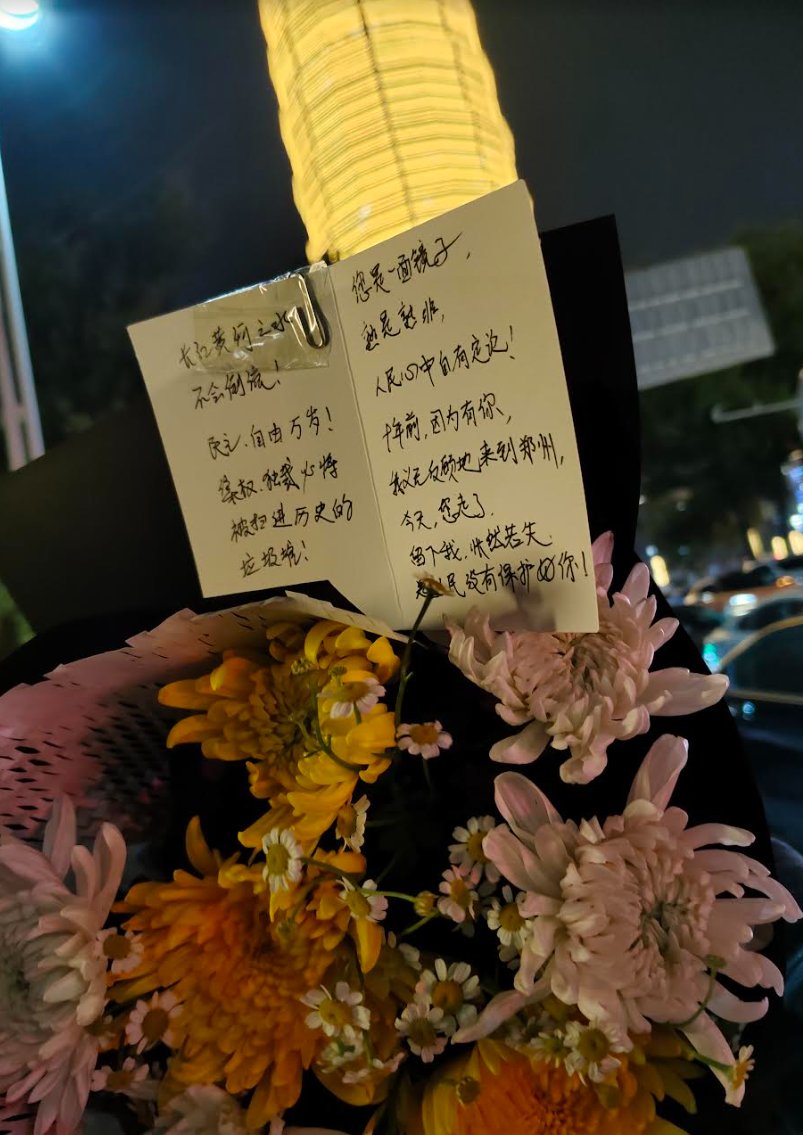 长江黄河之水
不会倒流！
民主、自由万岁！
集权、独裁必将
被扫进历史的
垃圾堆！
您是一面镜子，
孰是孰非，
人民心中自有定论！
十年前，因为有你，
我义无反顾地来到郑州，
今天，您走了，
留下我，怅然若失
人民没有保护好你！